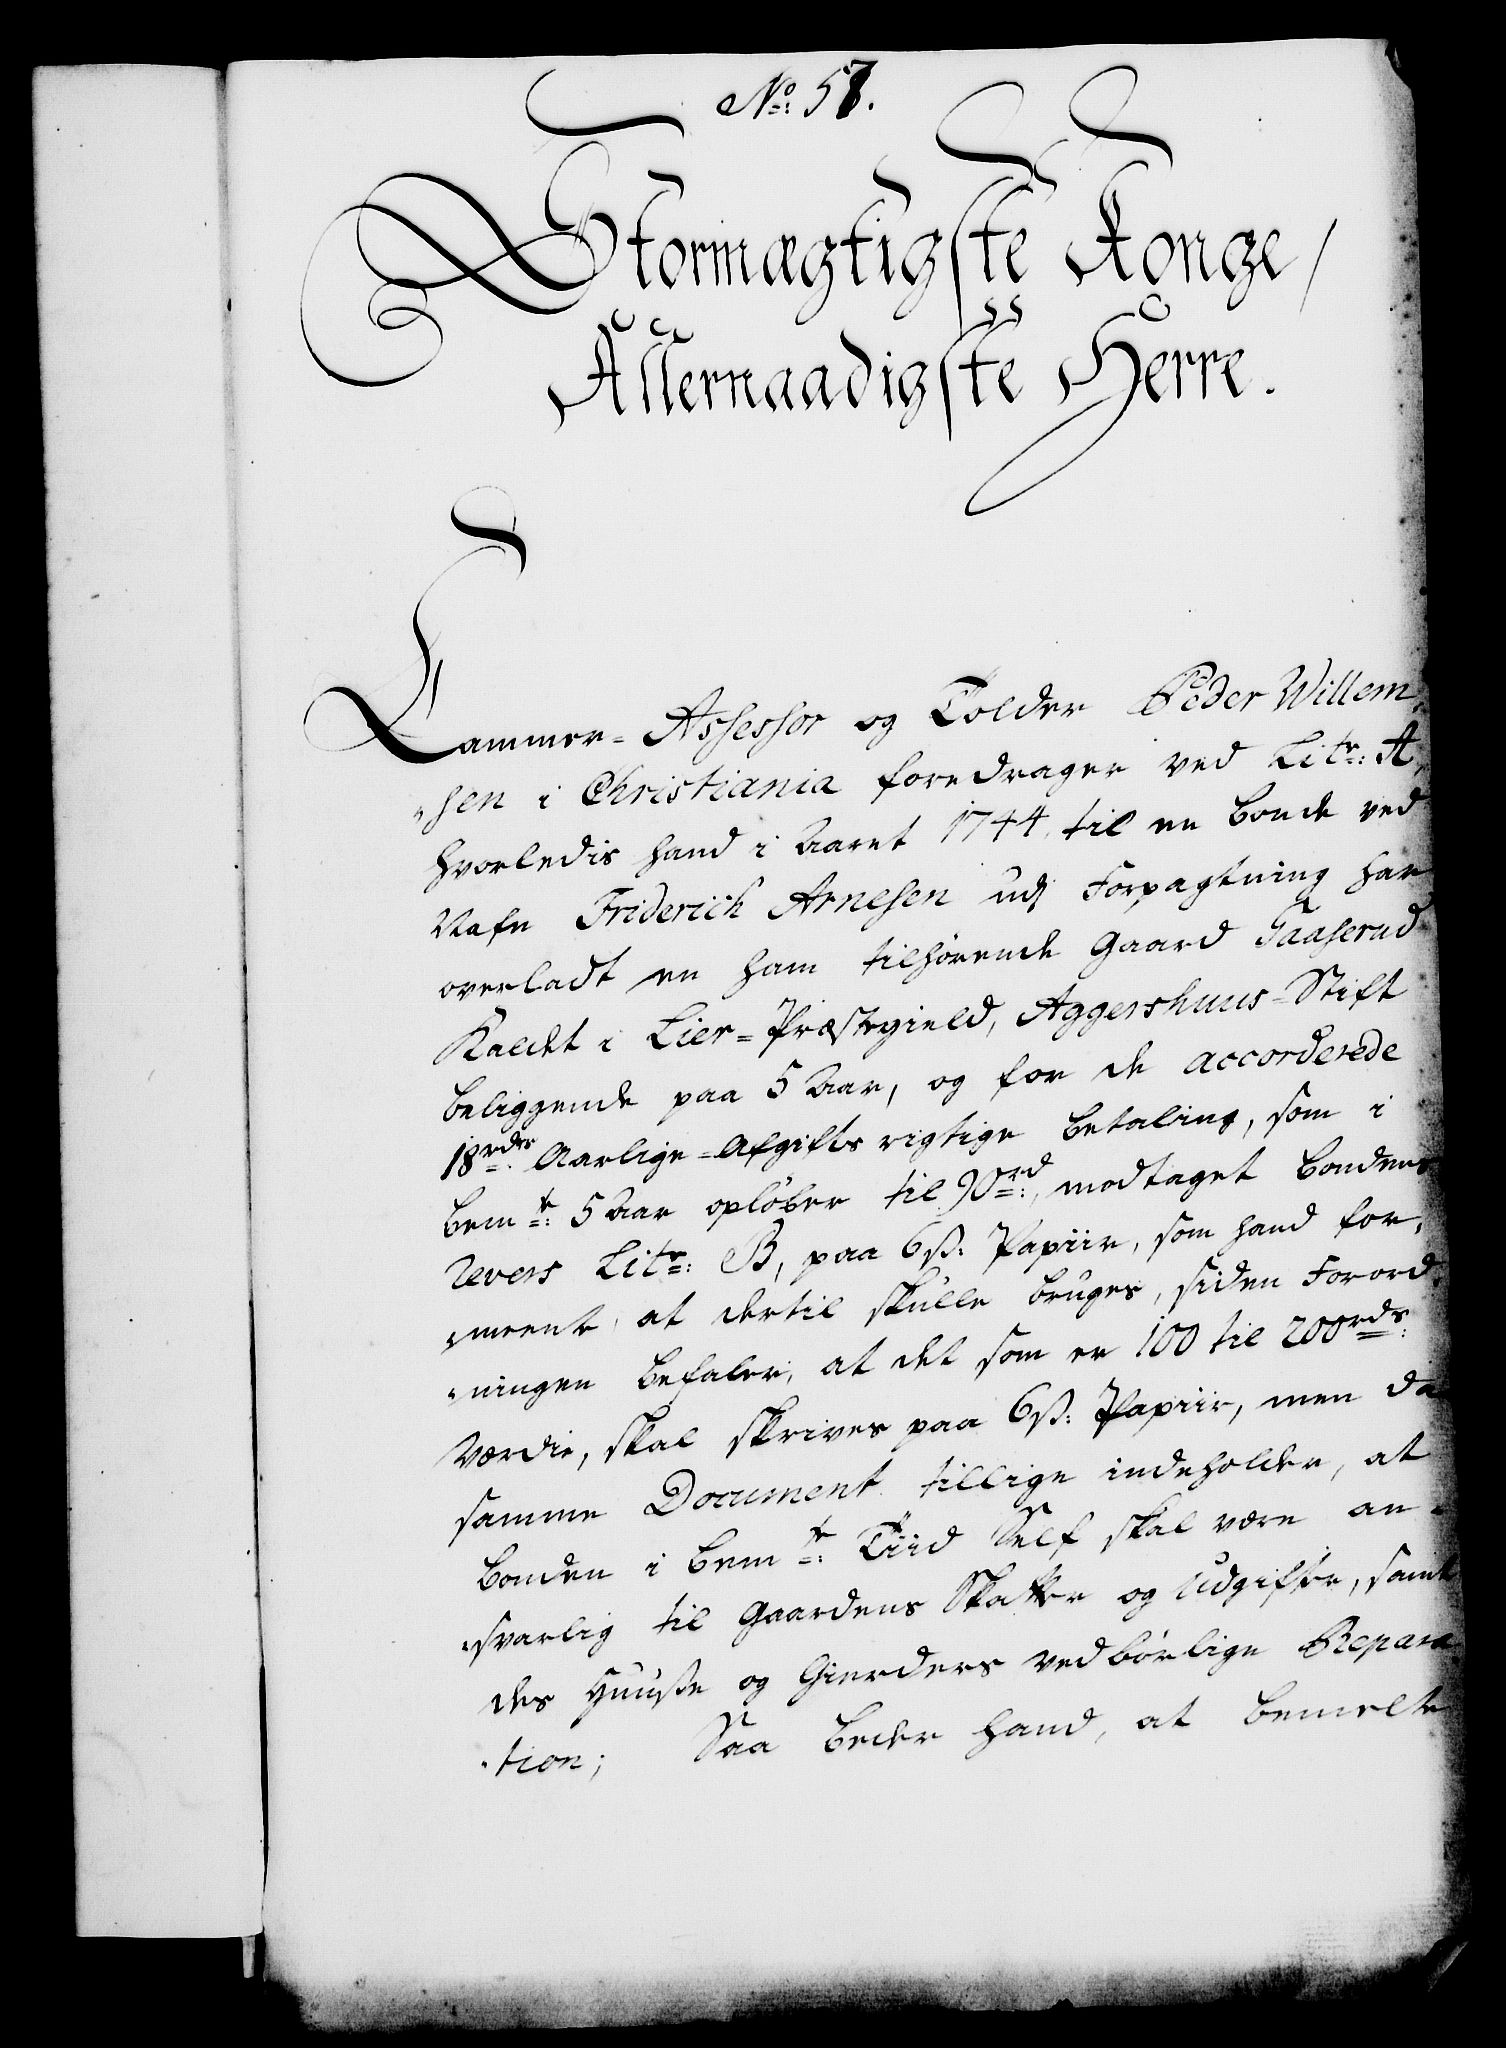 No: 57.
Stormægtigste Konge/
Allernaadigste Herre.
Cammer-Assessor og Tolder Peder Willem-
-sen i Christiania foredrager ved Litr: A,
hvorledis hand i Aaret 1744 til en bonde ved
Nafn Friderich Arnesen udj Forpagtning har
overladt en ham tilhørende Gaard Gaaserud
Kaldet i Lier-Præstegield, Aggershuus-Stift
beliggende paa 5 Aar, og for de accorderede
18rdr Aarlige-Afgifts rigtige betaling, som i
bemte: 5 Aar opløber til 90rd:, modtaget bondens
Revers Litr: B, paa 6ß: Papiir, som hand for-
-meente, at dertil skulle bruges, siden Forord-
-ningen befaler, at det som er 100 til 200rds:
Værdie, skal skrives paa 6ß: Papiir, men da
samme Document tillige indeholder, at
bonden i bemte: Tiid Self skal være an-
-svarlig til Gaardens Skatter og Udgifter, samt
des Huuse og Gierders vedbørlige Repara
-tion; Saa beder hand, at bemelte